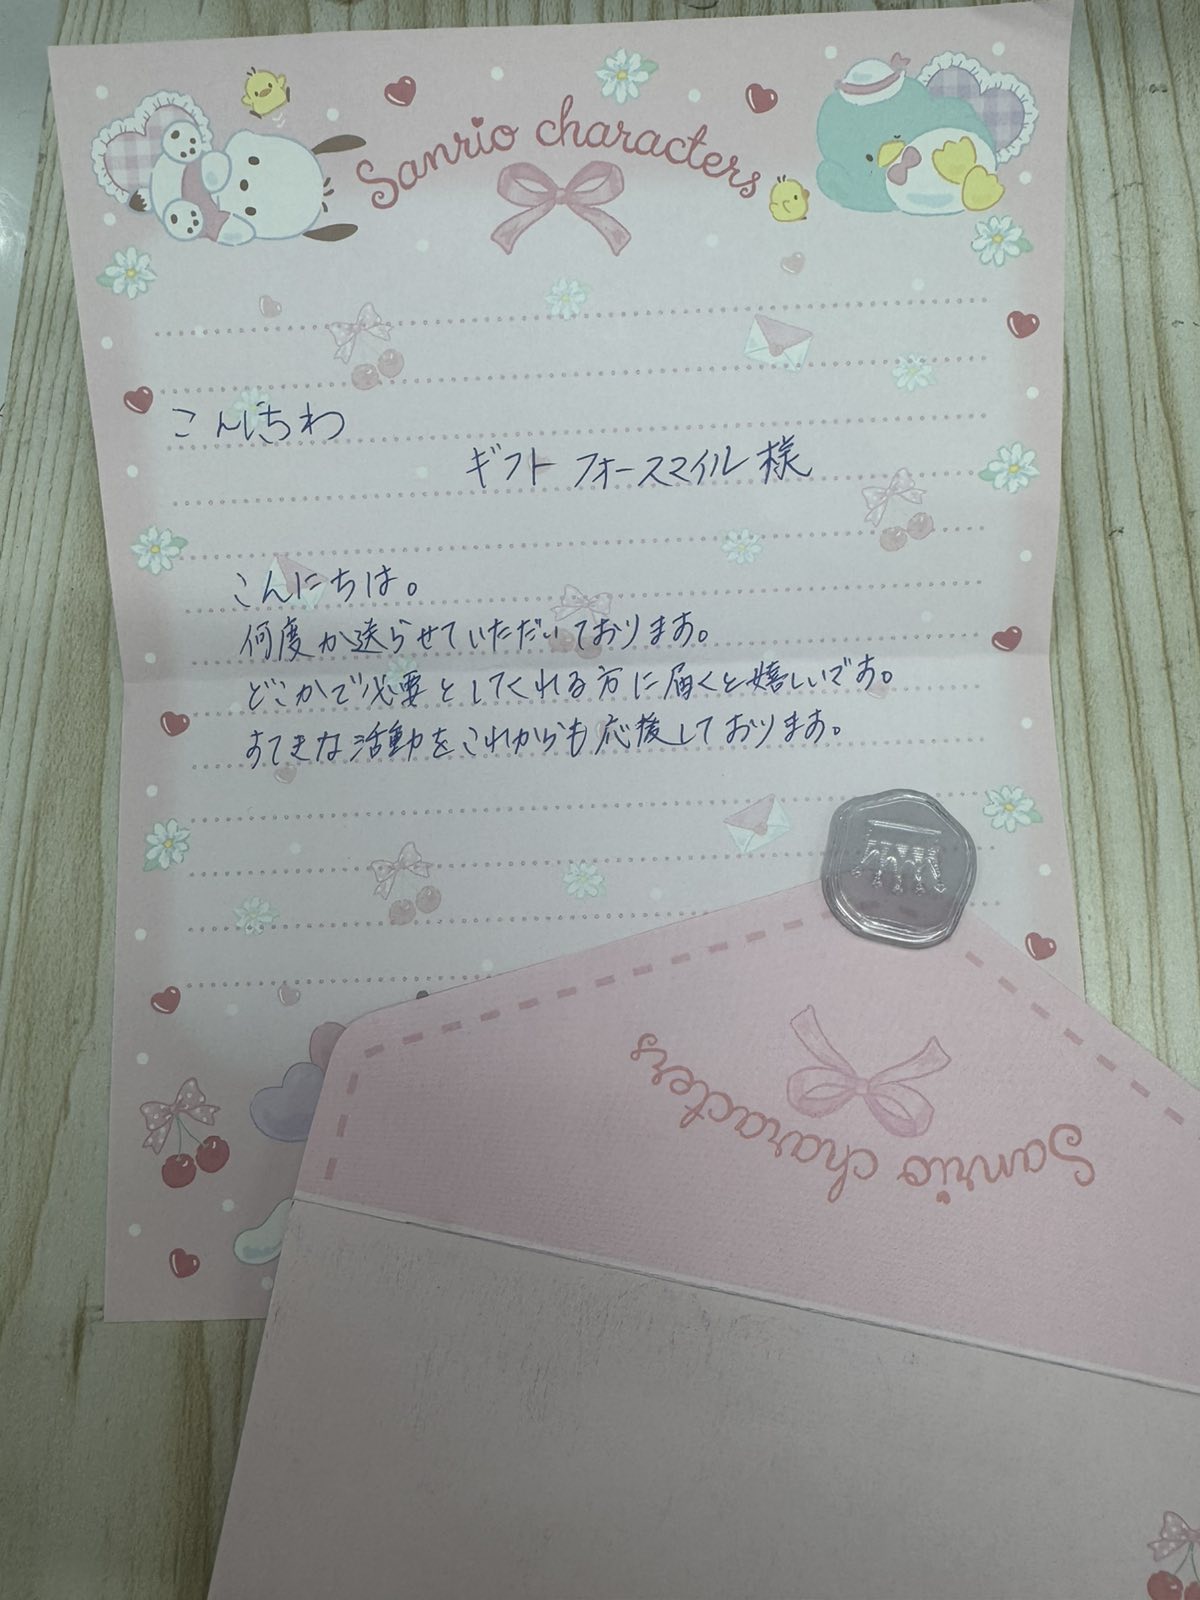 Sanrio characters
こんにちわ
ギフトフォースマイル様
こんにちは。
何度か送らせていただいております。
どこかで必要としてくれる方に届くと嬉しいです。
すてきな活動をこれからも応援しております。
Sanrio characters